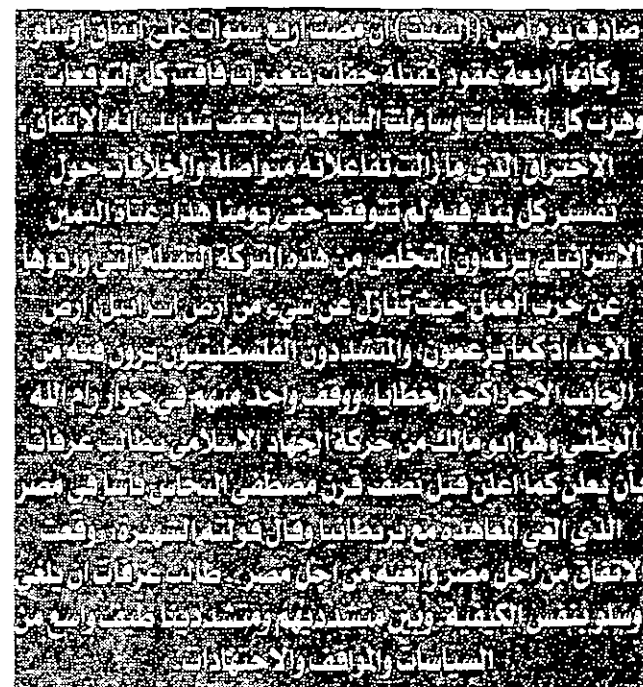 صادف يوم امس (السبت) ان مضت اربع سنوات على اتفاق اوسلو
وكأنها اربعة عقود ثقيلة حفلت بتغيرات فاقت كل التوقعات
وهزت كل المسلمات وساءلت البديهيات بعنف شديد. انه الاتفاق
الاختراق الذي ما زالت تفاعلاته متواصلة والخلافات حول
تفسير كل بند فيه لم تتوقف حتى يومنا هذا. عتاة اليمين
الاسرائيلي يريدون التخلص من هذه التركة الثقيلة التي ورثوها
عن حزب العمل حيث تنازل عن شيء من ارض اسرائيل، ارض
الاجداد كما يزعمون، والمتشددون الفلسطينيون يرون فيه من
الجانب الآخر اكبر الخطايا، ووقف واحد منهم في حوار رام الله
الوطني وهو ابو مالك من حركة الجهاد الاسلامي يطالب عرفات
بأن يعلن كما اعلن قبل نصف قرن مصطفى النحاس باشا في مصر
الذي الغى المعاهدة مع بريطانيا وقال قولته الشهيرة: وقعت
الاتفاق من اجل مصر وألغيه من اجل مصر. طالب عرفات ان يلغي
اوسلو بنفس الكيفية. وبين متشدديهم ومتشددينا طيف واسع من
السياسات والمواقف والاجتهادات